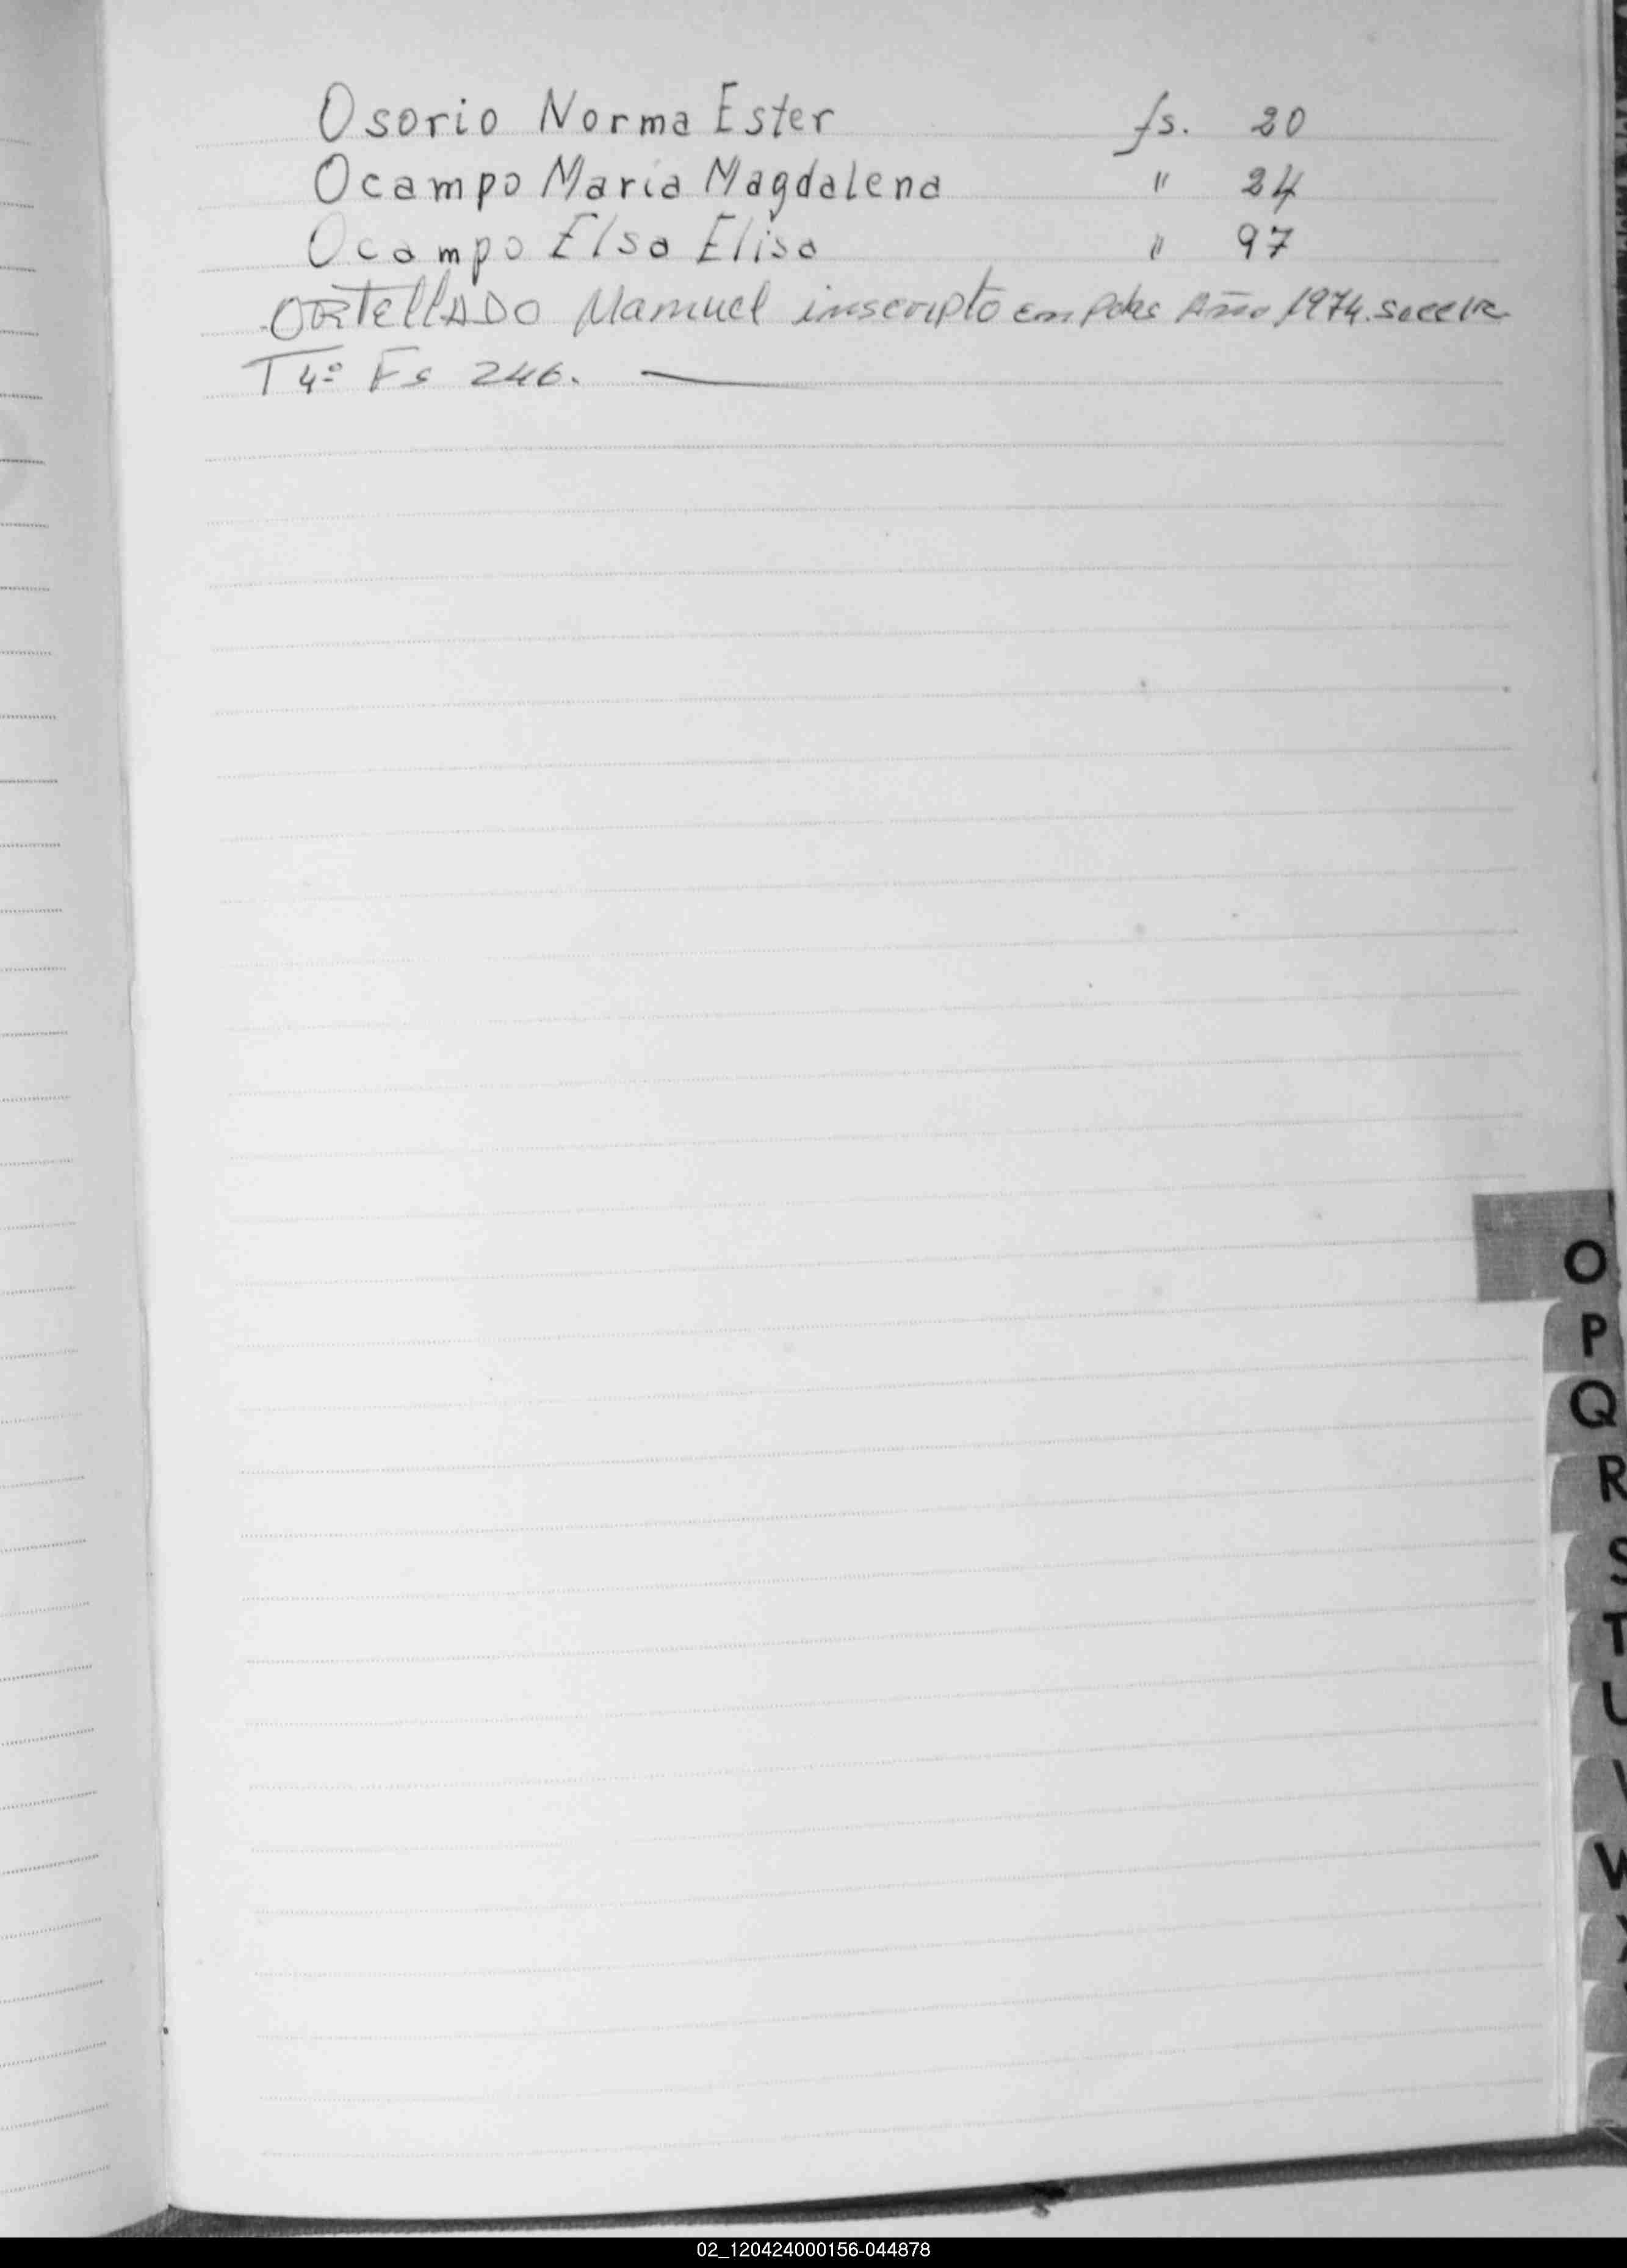 Osorio Norma Ester fs. 20
Ocampo María Magdalena " 24
Ocampo Elsa Elisa " 97
ORTELLADO Manuel inscripto en Año 1974.
T 4º Fs 246.
O
P
Q
R
S
T
U
V
W
02_120424000156-044878